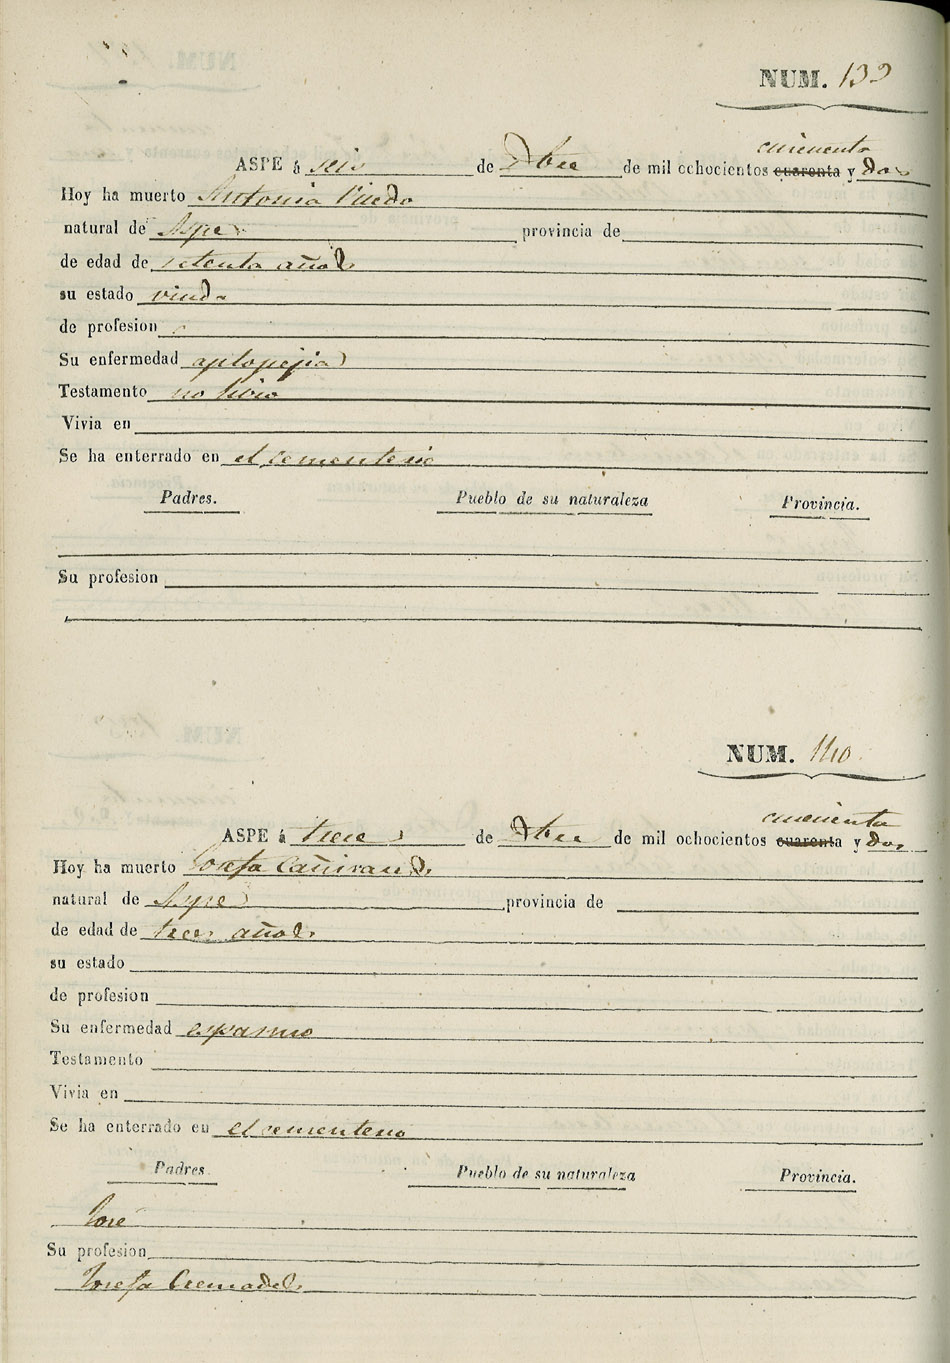 NUM. 139
cincuenta
ASPE á seis de Dbre de mil ochocientos cuarenta y dos
Hoy ha muerto Antonia Pujedo
natural de Aspe provincia de
de edad de setenta años
su estado viuda
de profesion
Su enfermedad aplopejia
Testamento no hizo
Vivia en
Se ha enterrado en el cementerio
Padres. Pueblo de su naturaleza Provincia.
Su profesion
NUM. 140
cincuenta
ASPE á trece de Dbre de mil ochocientos cuarenta y dos
Hoy ha muerto Josefa Cañizares
natural de Aspe provincia de
de edad de tres años
su estado
de profesion
Su enfermedad espasmo
Testamento
Vivia en
Se ha enterrado en el cementerio
Padres. Pueblo de su naturaleza Provincia.
José
Su profesion
Josefa Cremades